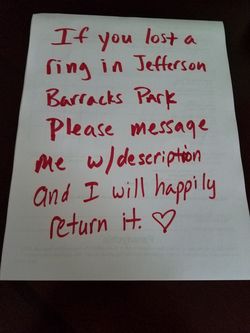 If you lost a
ring in Jefferson
Barracks Park
Please message
me w/description
and I will happily
return it. ♡